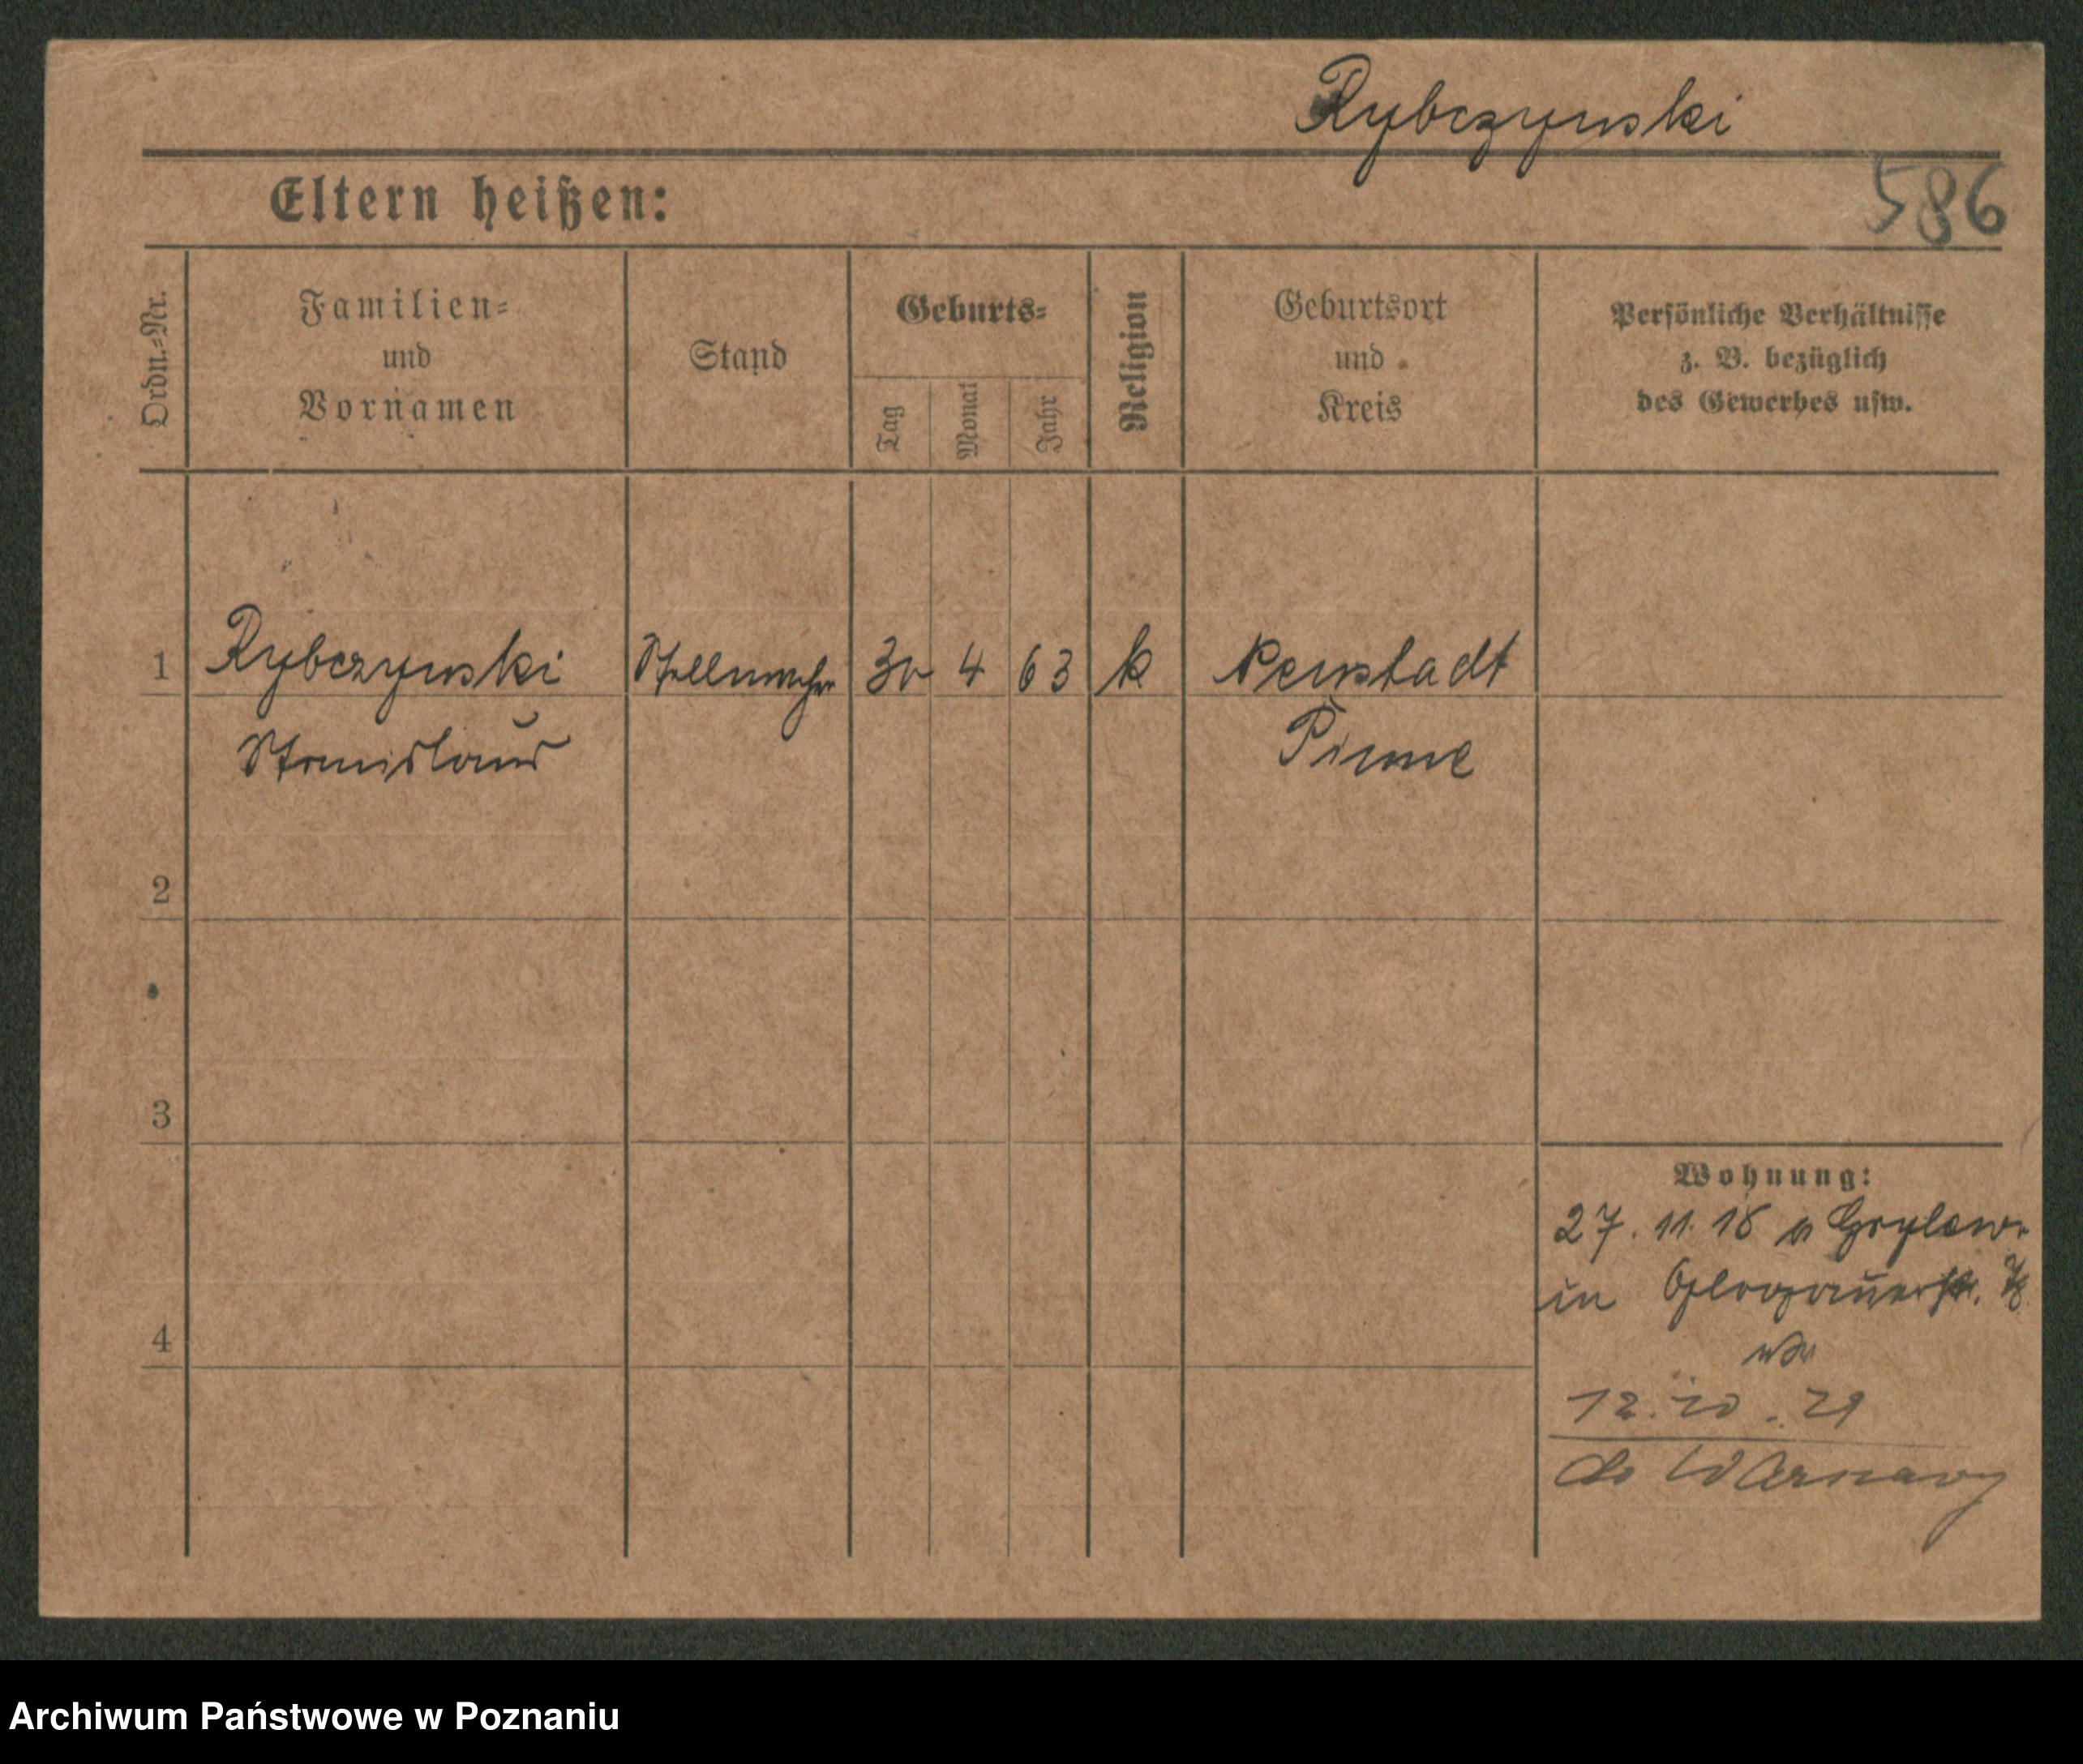 Rybczynski
586
Eltern heißen:
Ordn.-Nr.
Familien-
und
Vornamen
Stand
Geburts-
Tag
Monat
Jahr
Religion
Geburtsort
und
Kreis
Persönliche Verhältnisse
z. B. bezüglich
des Gewerbes usw.
1 Rybczynski Stellmacher 30 4 63 k Neustadt
Stanislaus Pinne
2
3
4
Wohnung:
27. 11. 18 v
in Glogauerstr.
12. 10. 29
do Warszawy
Archiwum Państwowe w Poznaniu